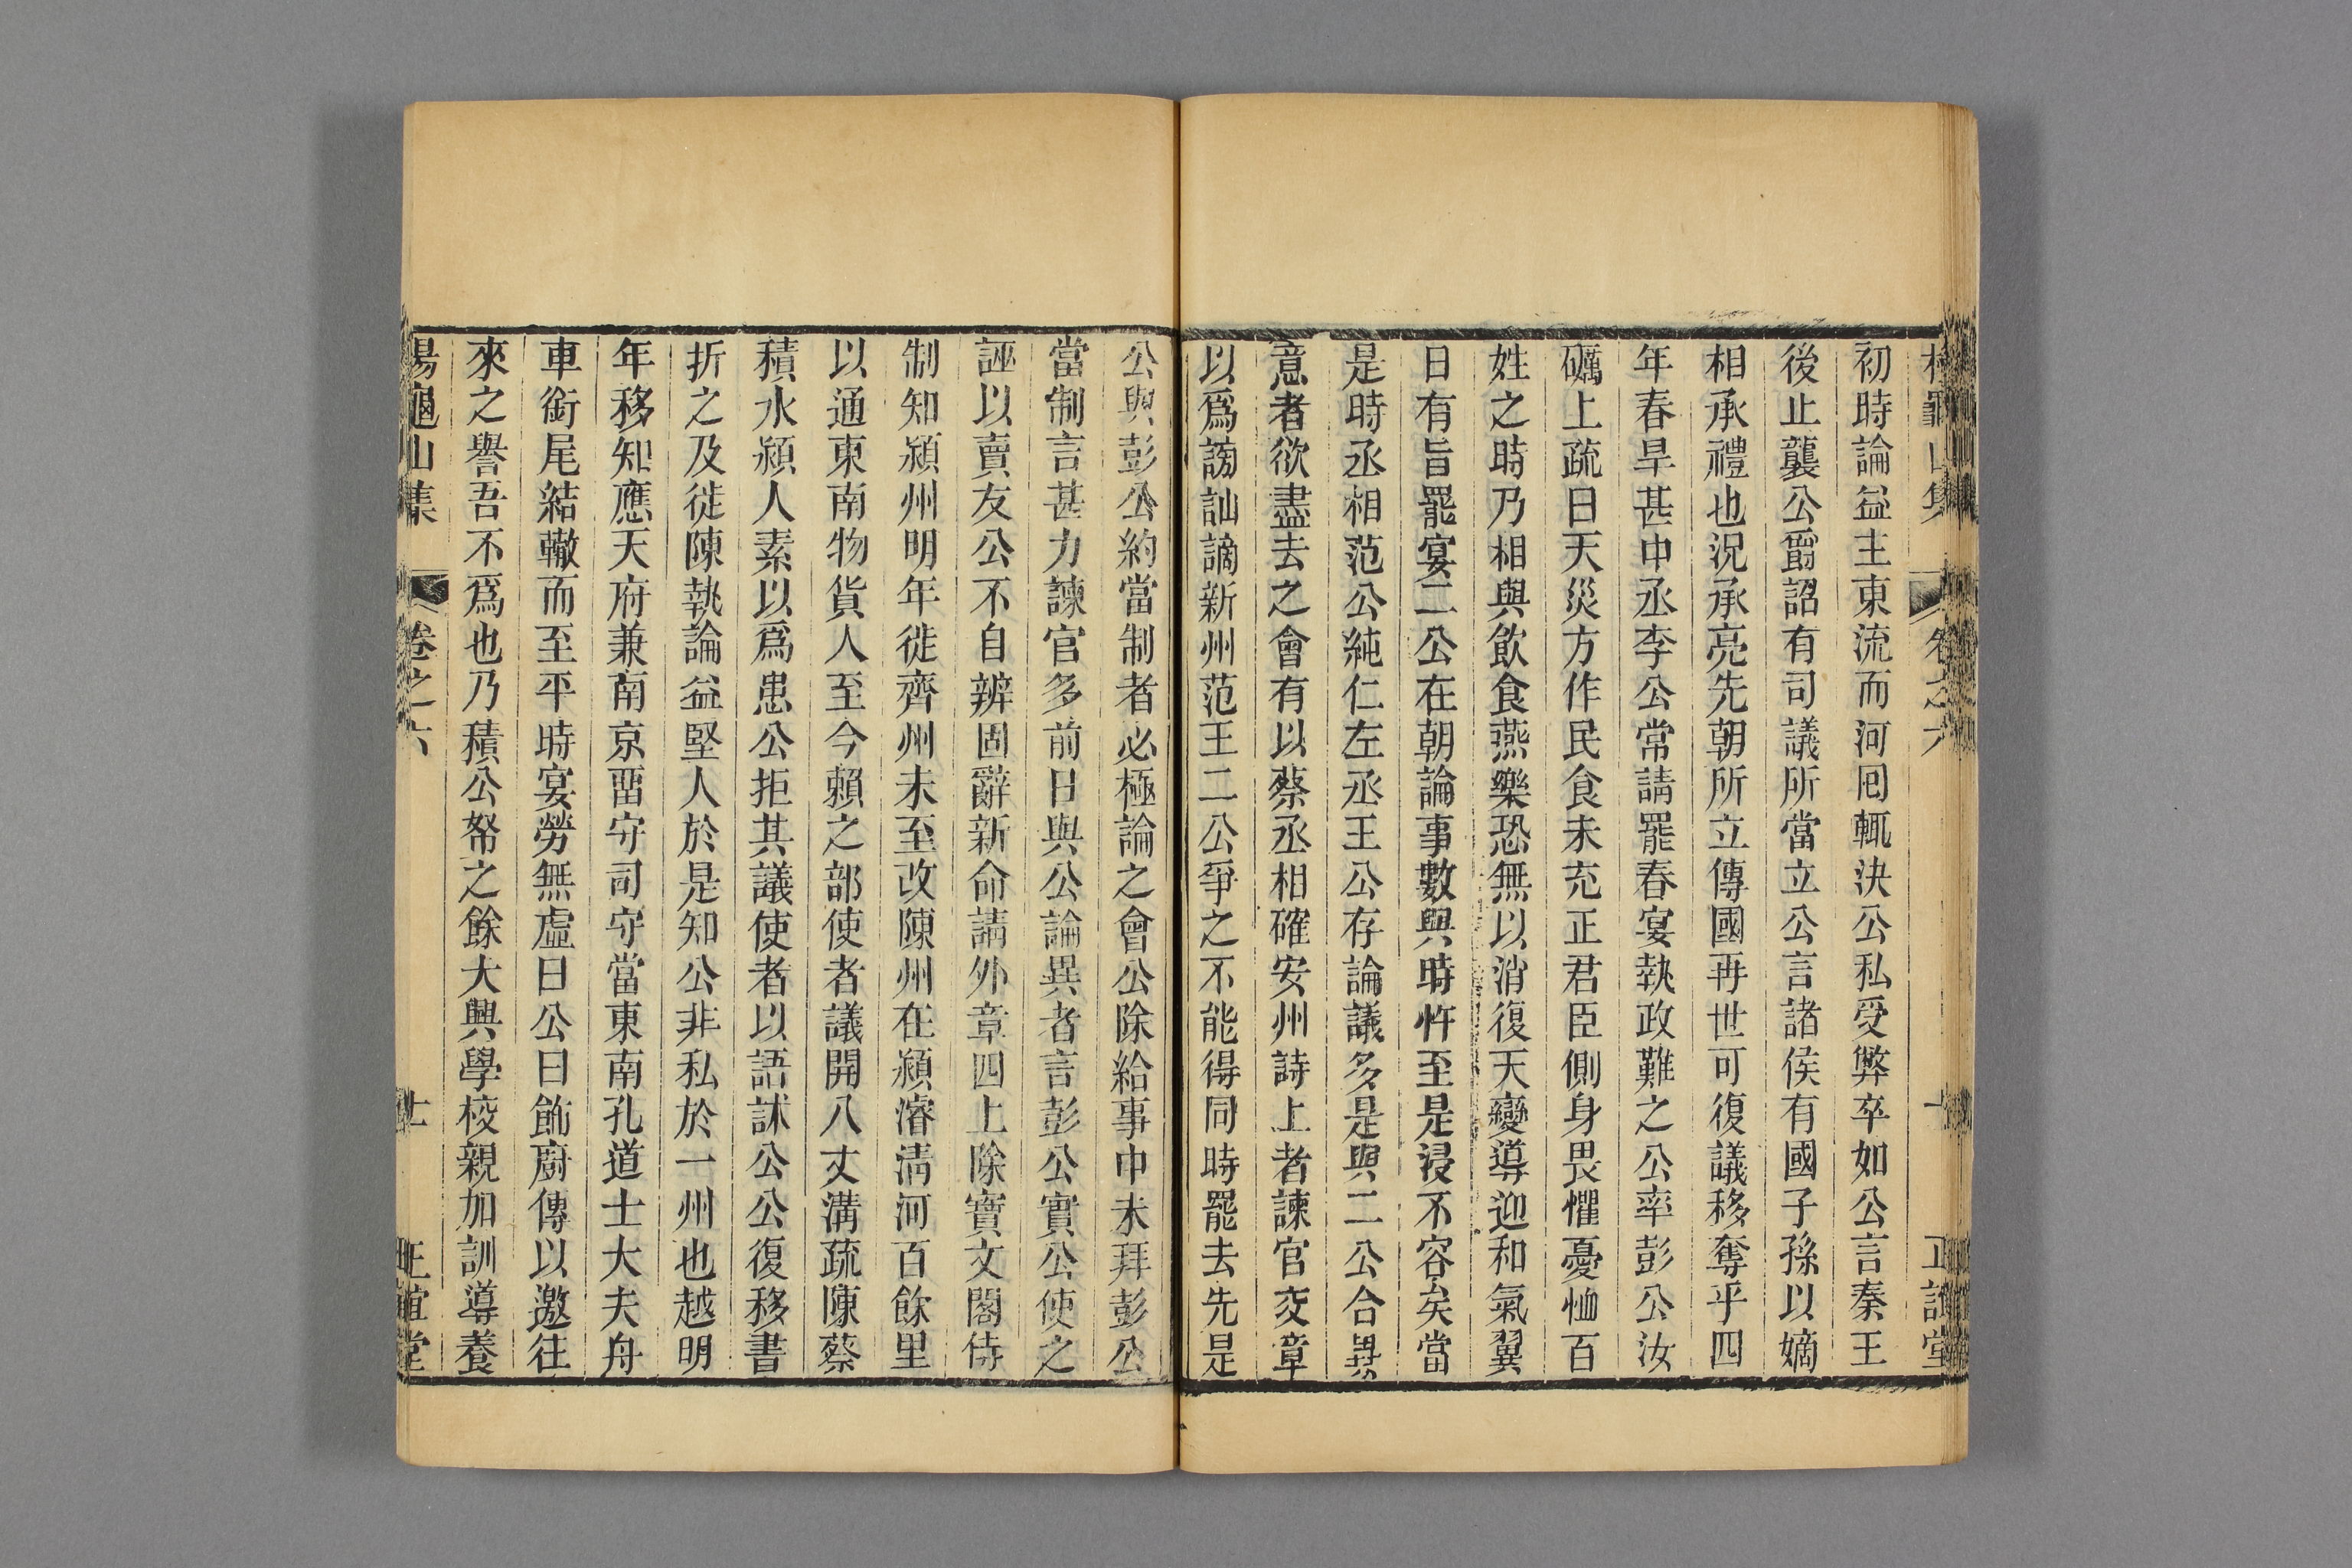 初時論益主東流而河囘輒決公私受弊卒如公言秦王
後止襲公爵詔有司議所當立公言諸侯有國子孫以嫡
相承禮也況承亮先朝所立傳國再世可復議移奪乎四
年春旱甚中丞李公常請罷春宴執政難之公率彭公汝
礪上疏曰天災方作民食未充正君臣側身畏懼憂恤百
姓之時乃相與飲食燕樂恐無以消復天變導迎和氣翼
日有旨罷宴二公在朝論事數與時忤至是浸不容矣當
是時丞相范公純仁左丞王公存論議多是與二公合異
意者欲盡去之會有以蔡丞相確安州詩上者諫官交章
以爲謗訕謫新州范王二公爭之不能得同時罷去先是
公與彭公約當制者必極論之會公除給事中未拜彭公
當制言甚力諫官多前日與公論異者言彭公實公使之
誣以賣友公不自辨固辭新命請外章四上除寶文閣待
制知潁州明年徙齊州未至改陳州在潁濬淸河百餘里
以通東南物貨人至今賴之部使者議開八丈溝疏陳蔡
積水潁人素以爲患公拒其議使者以語訹公公復移書
折之及徙陳執論益堅人於是知公非私於一州也越明
年移知應天府兼南京畱守司守當東南孔道士大夫舟
車銜尾結轍而至平時宴勞無虛日公曰飾廚傳以邀往
來之譽吾不爲也乃積公帑之餘大興學校親加訓導養
楊龜山集 卷之六 七 正誼堂